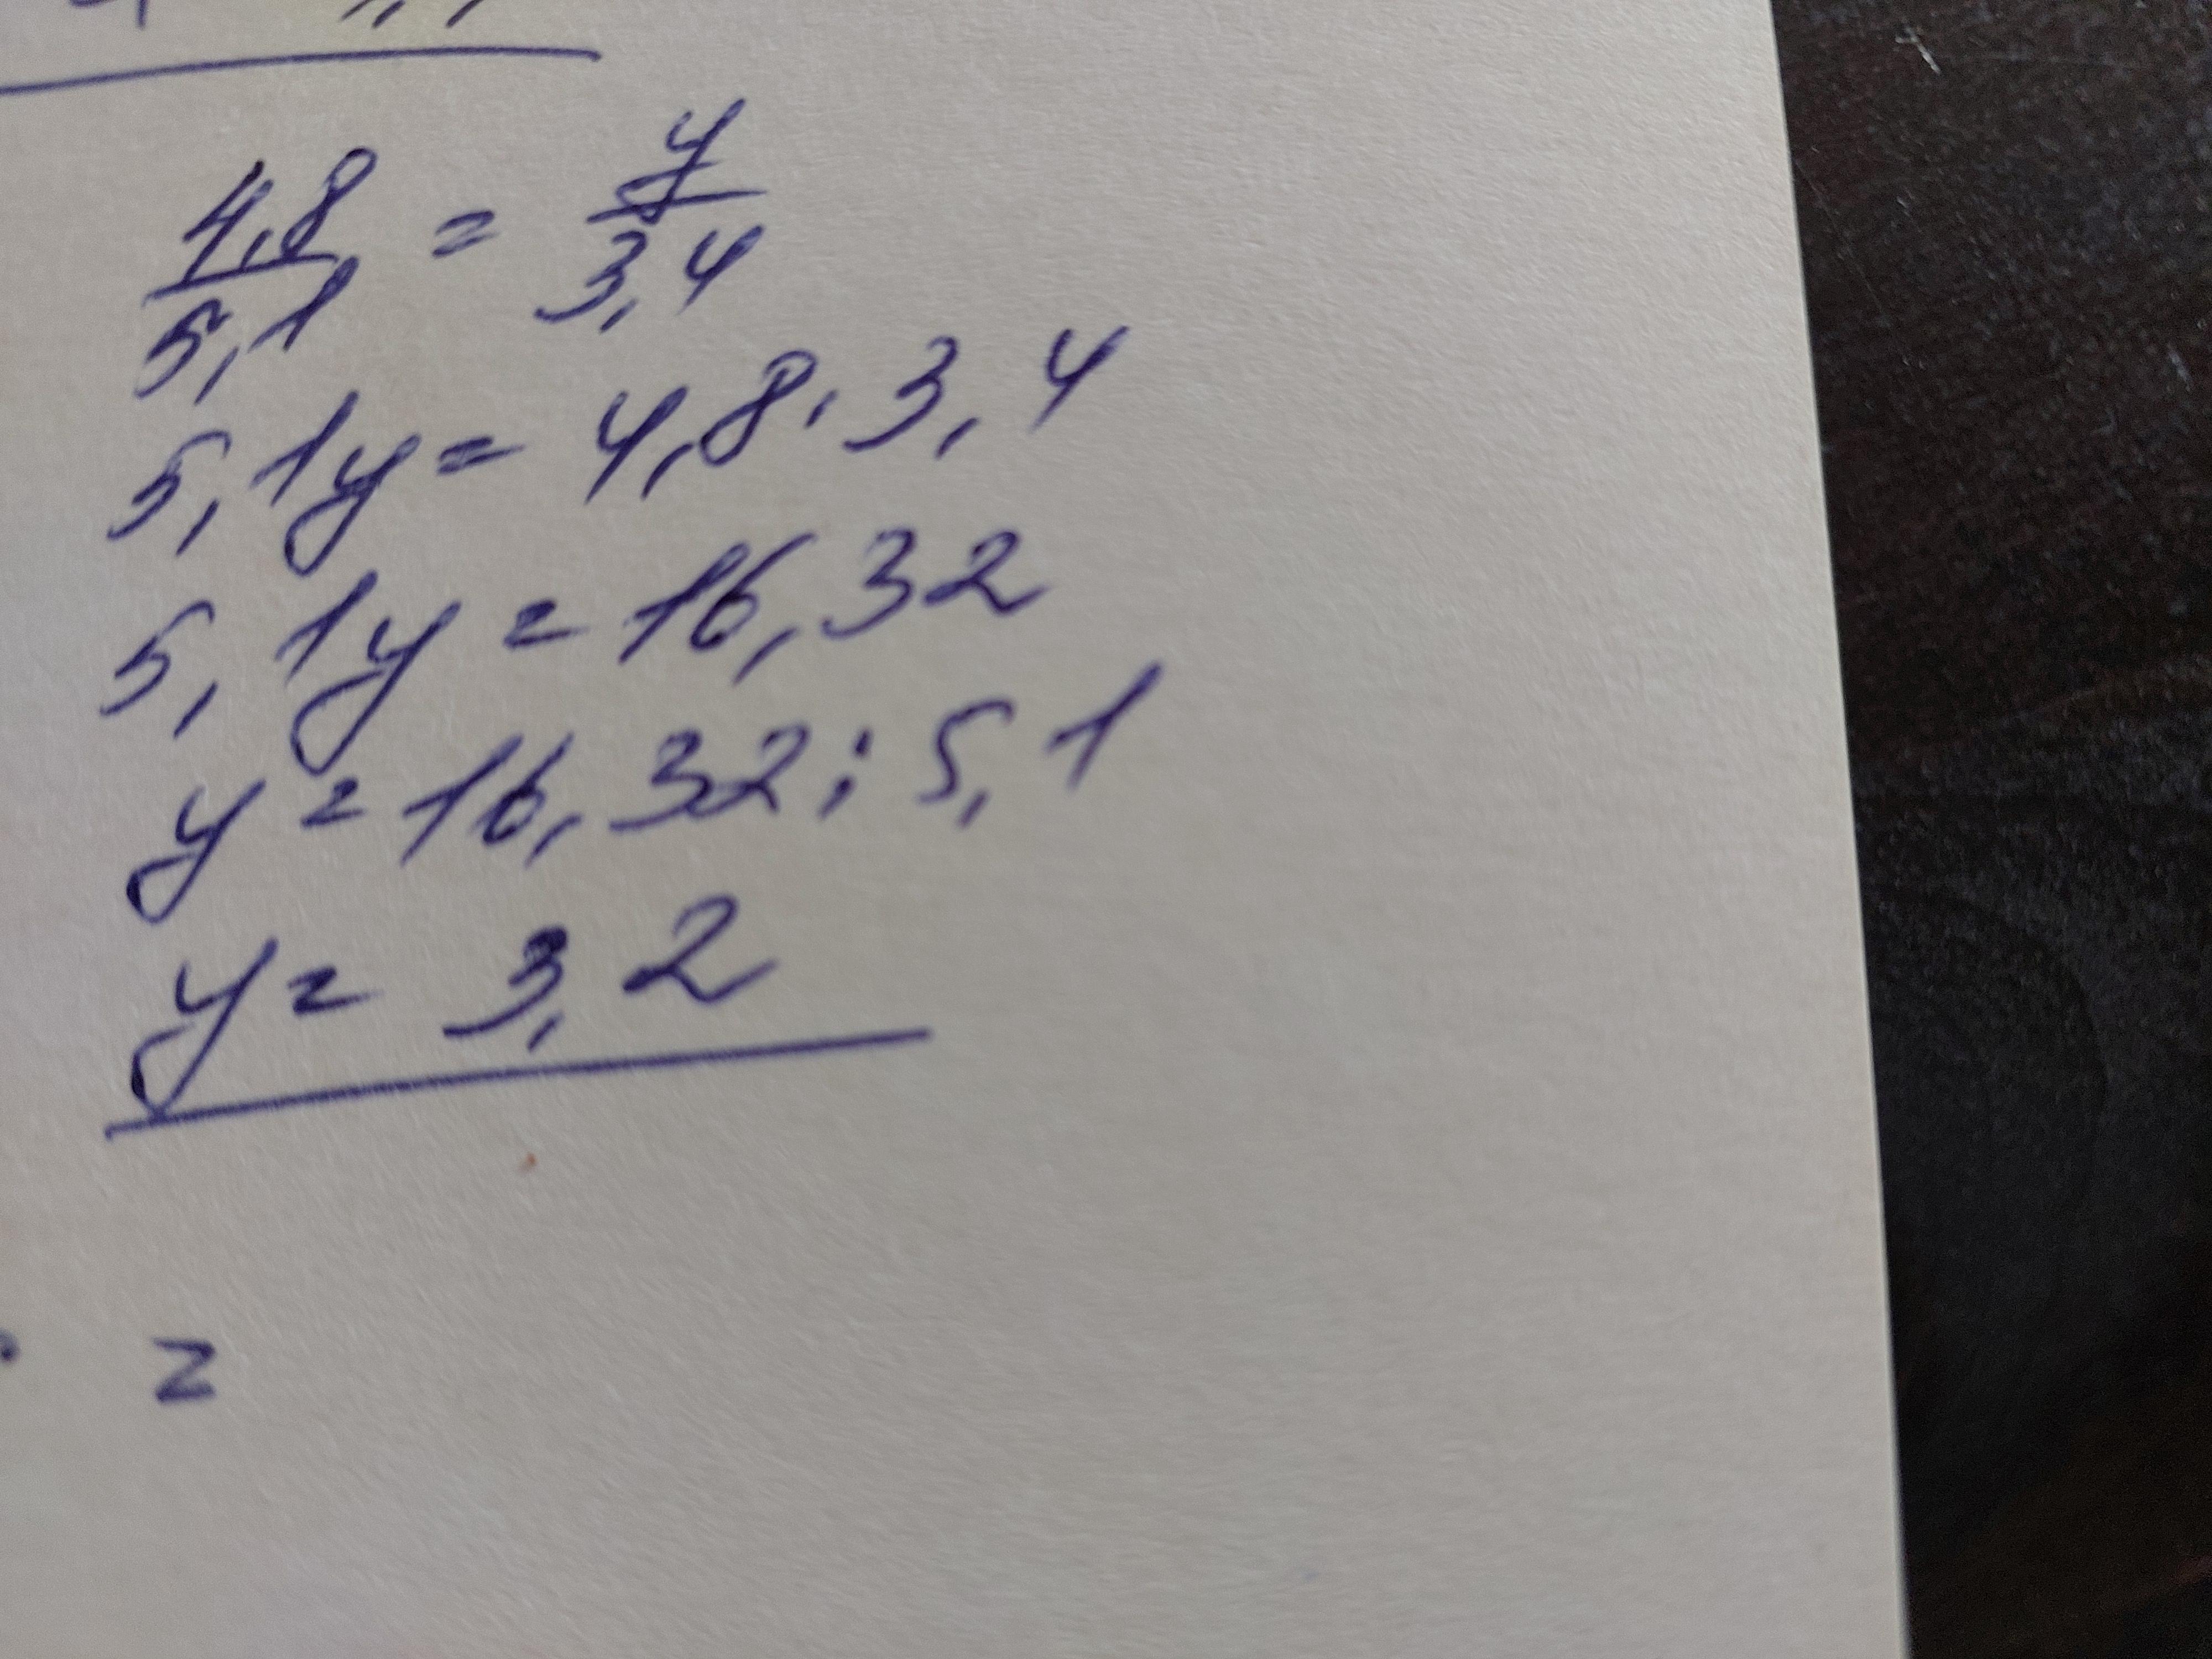 4,8/5,1 = y/3,4
5,1y = 4,8 · 3,4
5,1y = 16,32
y = 16,32 : 5,1
y = 3,2
=